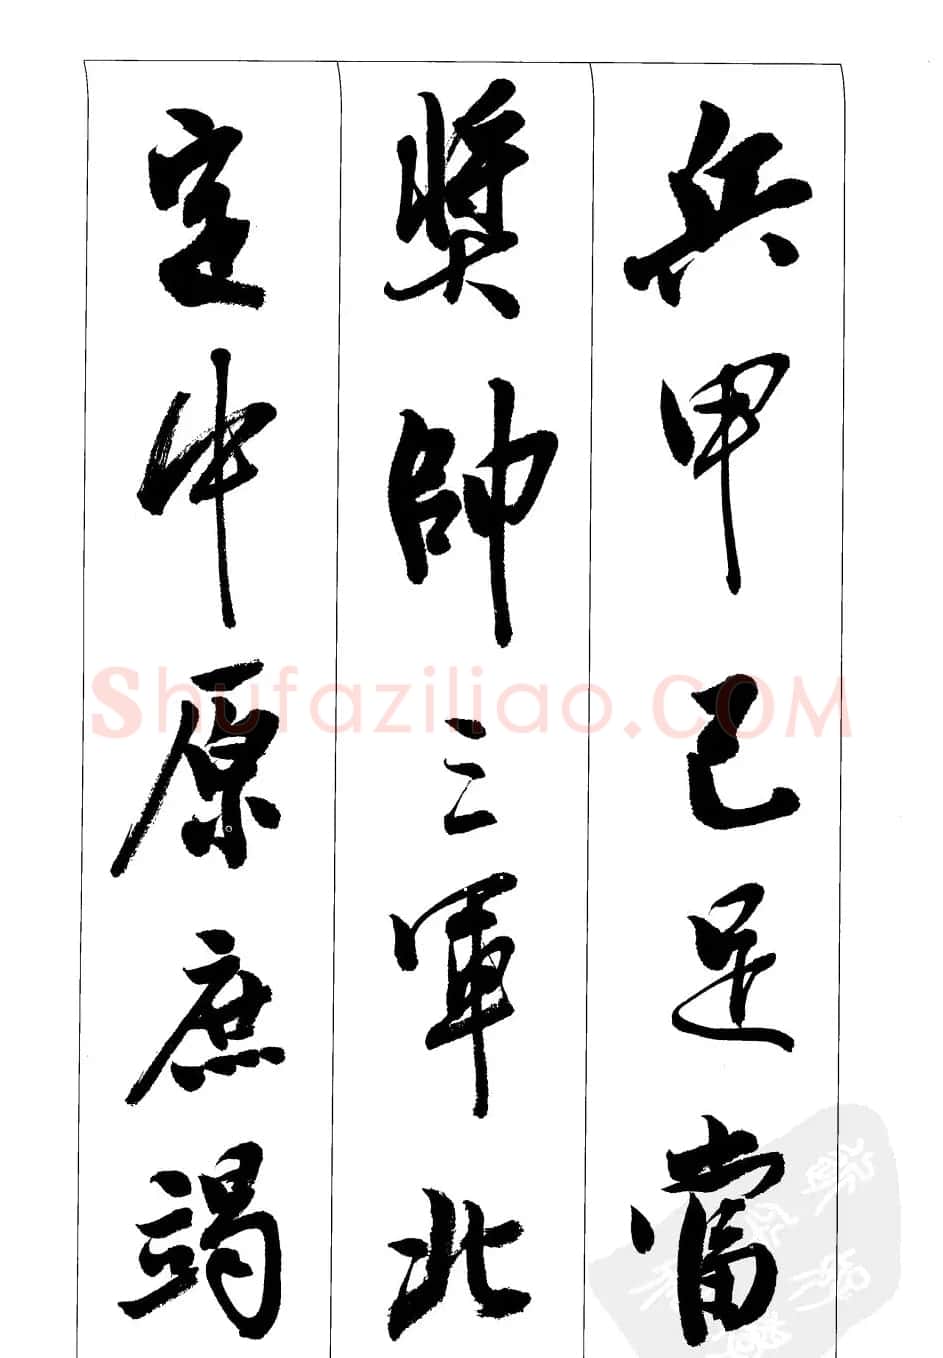 兵甲已足當
奬帥三軍北
定中原庶竭
Shufaziliao.COM